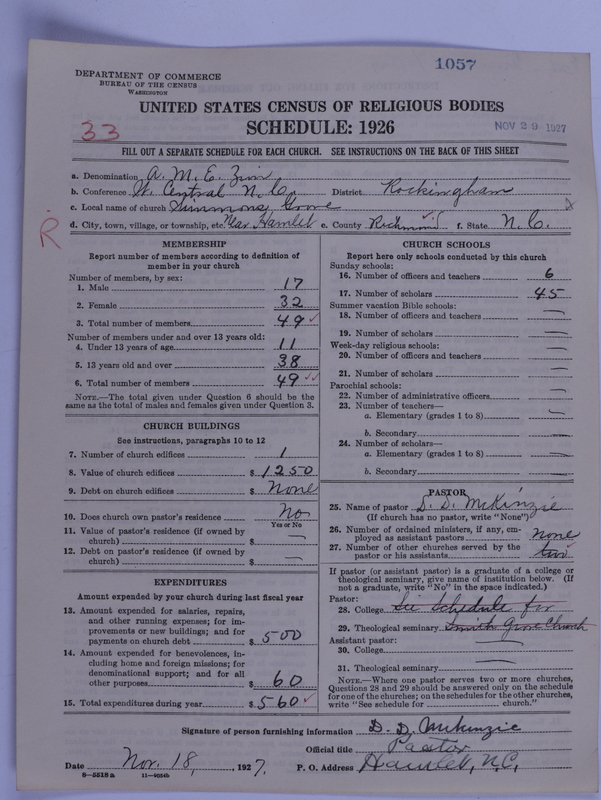 1057
DEPARTMENT OF COMMERCE
BUREAU OF THE CENSUS
WASHINGTON
UNITED STATES CENSUS OF RELIGIOUS BODIES
33
SCHEDULE: 1926
NOV 29 1927
FILL OUT A SEPARATE SCHEDULE FOR EACH CHURCH. SEE INSTRUCTIONS ON THE BACK OF THIS SHEET
a. Denomination A. M. E. Zion
b. Conference W. Central N. C. District Rockingham
c. Local name of church Simmons Grove x
R
d. City, town, village, or township, etc. Near Hamlet e. County Richmond f. State N. C.
MEMBERSHIP
Report number of members according to definition of
member in your church
Number of members, by sex:
1. Male 17
2. Female 32
3. Total number of members 49
Number of members under and over 13 years old:
4. Under 13 years of age 11
5. 13 years old and over 38
6. Total number of members 49
NOTE.—The total given under Question 6 should be the
same as the total of males and females given under Question 3.
CHURCH BUILDINGS
See instructions, paragraphs 10 to 12
7. Number of church edifices 1
8. Value of church edifices $ 1250
9. Debt on church edifices $ None
10. Does church own pastor's residence No
Yes or No
11. Value of pastor's residence (if owned by
church) $ —
12. Debt on pastor's residence (if owned by
church) $ —
EXPENDITURES
Amount expended by your church during last fiscal year
13. Amount expended for salaries, repairs,
and other running expenses; for im-
provements or new buildings; and for
payments on church debt $ 500
14. Amount expended for benevolences, in-
cluding home and foreign missions; for
denominational support; and for all
other purposes $ 60
15. Total expenditures during year $ 560
CHURCH SCHOOLS
Report here only schools conducted by this church
Sunday schools:
16. Number of officers and teachers 6
17. Number of scholars 45
Summer vacation Bible schools:
18. Number of officers and teachers —
19. Number of scholars —
Week-day religious schools:
20. Number of officers and teachers —
21. Number of scholars —
Parochial schools:
22. Number of administrative officers —
23. Number of teachers—
a. Elementary (grades 1 to 8) —
b. Secondary —
24. Number of scholars—
a. Elementary (grades 1 to 8) —
b. Secondary —
PASTOR
25. Name of pastor D. D. McKinzie
(If church has no pastor, write "None")
26. Number of ordained ministers, if any, em-
ployed as assistant pastors None
27. Number of other churches served by the
pastor or his assistants two
If pastor (or assistant pastor) is a graduate of a college or
theological seminary, give name of institution below. (If
not a graduate, write "No" in the space indicated.)
Pastor:
28. College See Schedule for
29. Theological seminary Smith Grove Church
Assistant pastor:
30. College —
31. Theological seminary —
NOTE.—Where one pastor serves two or more churches,
Questions 28 and 29 should be answered only on the schedule
for one of the churches; on the schedules for the other churches,
write "See schedule for church."
Signature of person furnishing information D. D. McKinzie
Official title Pastor
Date Nov. 18, 1927. P. O. Address Hamlet, N.C.
8—5518 a 11—9034b